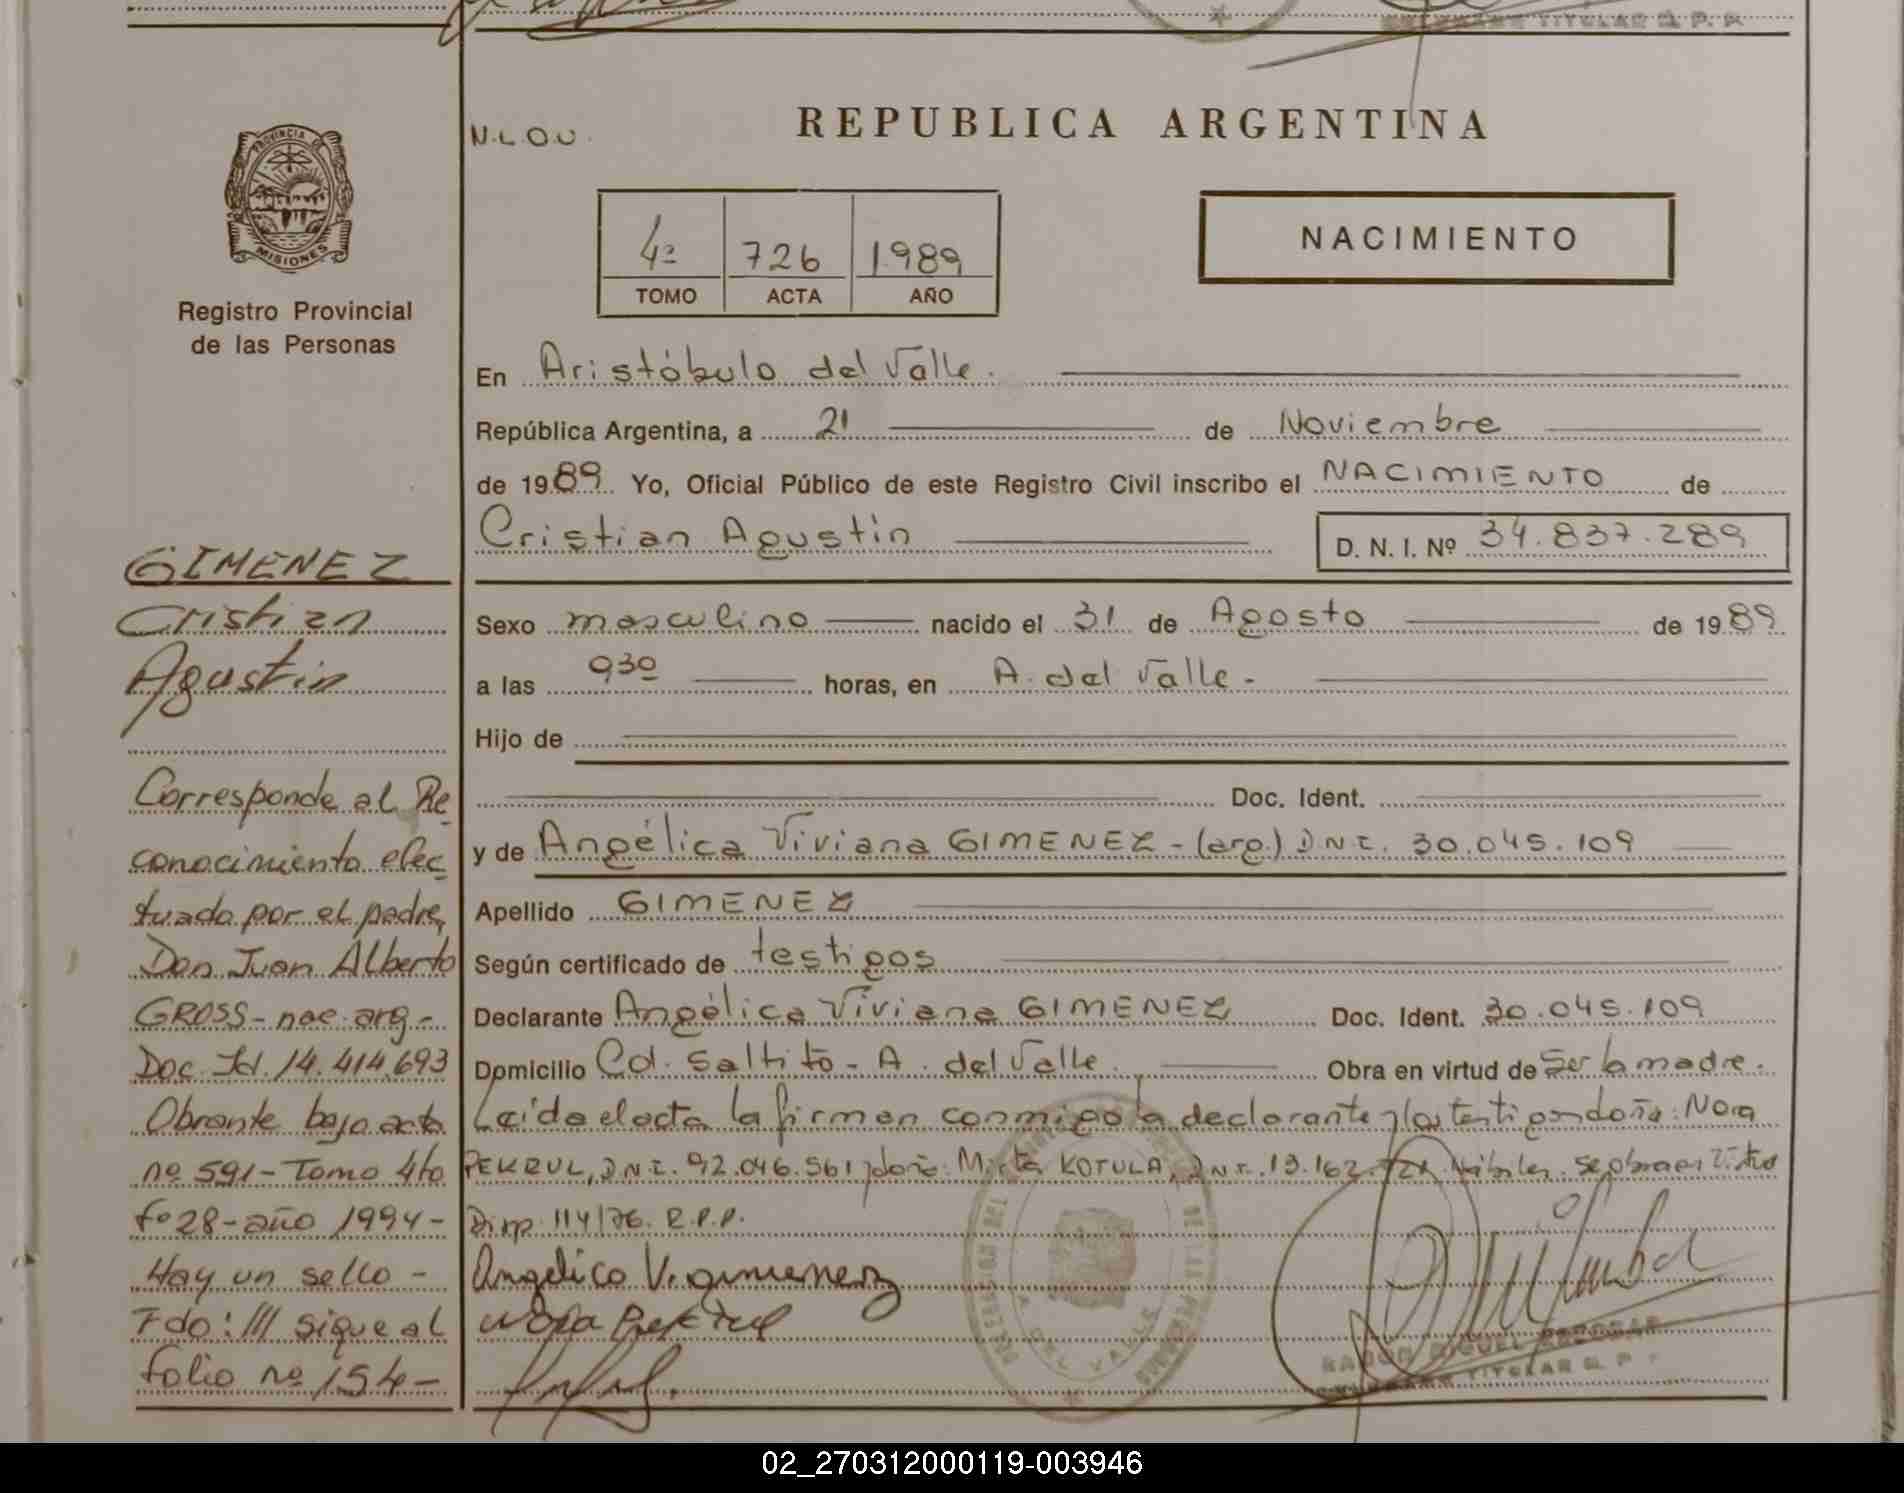 TITULAR R. P. P.
PROVINCIA
MISIONES
Registro Provincial
de las Personas
GIMENEZ
Cristian
Agustin
Corresponde al Re
conocimiento efec
tuado por el padre,
Don Juan Alberto
GROSS - nac. arg. -
Doc. Id. 14.414.693
Obrante bajo acta
nº 591 - Tomo 4to
fº 28 - año 1994 -
Hay un sello -
Fdo: /// sigue al
folio nº 154 -
N.L.O.U.
REPUBLICA ARGENTINA
4º 726 1989
TOMO ACTA AÑO
NACIMIENTO
En Aristóbulo del Valle.
República Argentina, a 21 de Noviembre
de 1989 Yo, Oficial Público de este Registro Civil inscribo el NACIMIENTO de
Cristian Agustín D. N. I. Nº 34.837.289
Sexo masculino nacido el 31 de Agosto de 1989
a las 930 horas, en A. del Valle.-
Hijo de
Doc. Ident.
y de Angélica Viviana GIMENEZ - (arg.) D.N.I. 30.045.109
Apellido GIMENEZ
Según certificado de testigos
Declarante Angélica Viviana GIMENEZ Doc. Ident. 30.045.109
Domicilio Cd. Saltito - A. del Valle. Obra en virtud de Ser la madre.
Leída el acta la firman conmigo la declarante y los testigos doña: Nora
PEKRUL, D.N.I. 92.046.561 y doña: Mirta KOTULA, D.N.I. 13.162. Hábiles. se obra en
Disp. 114/76. R.P.P.
Angelica V. Gimenez
Nora Pekrul
DEL VALLE
RAMON MIGUEL
TITULAR R. P. P.
02_270312000119-003946